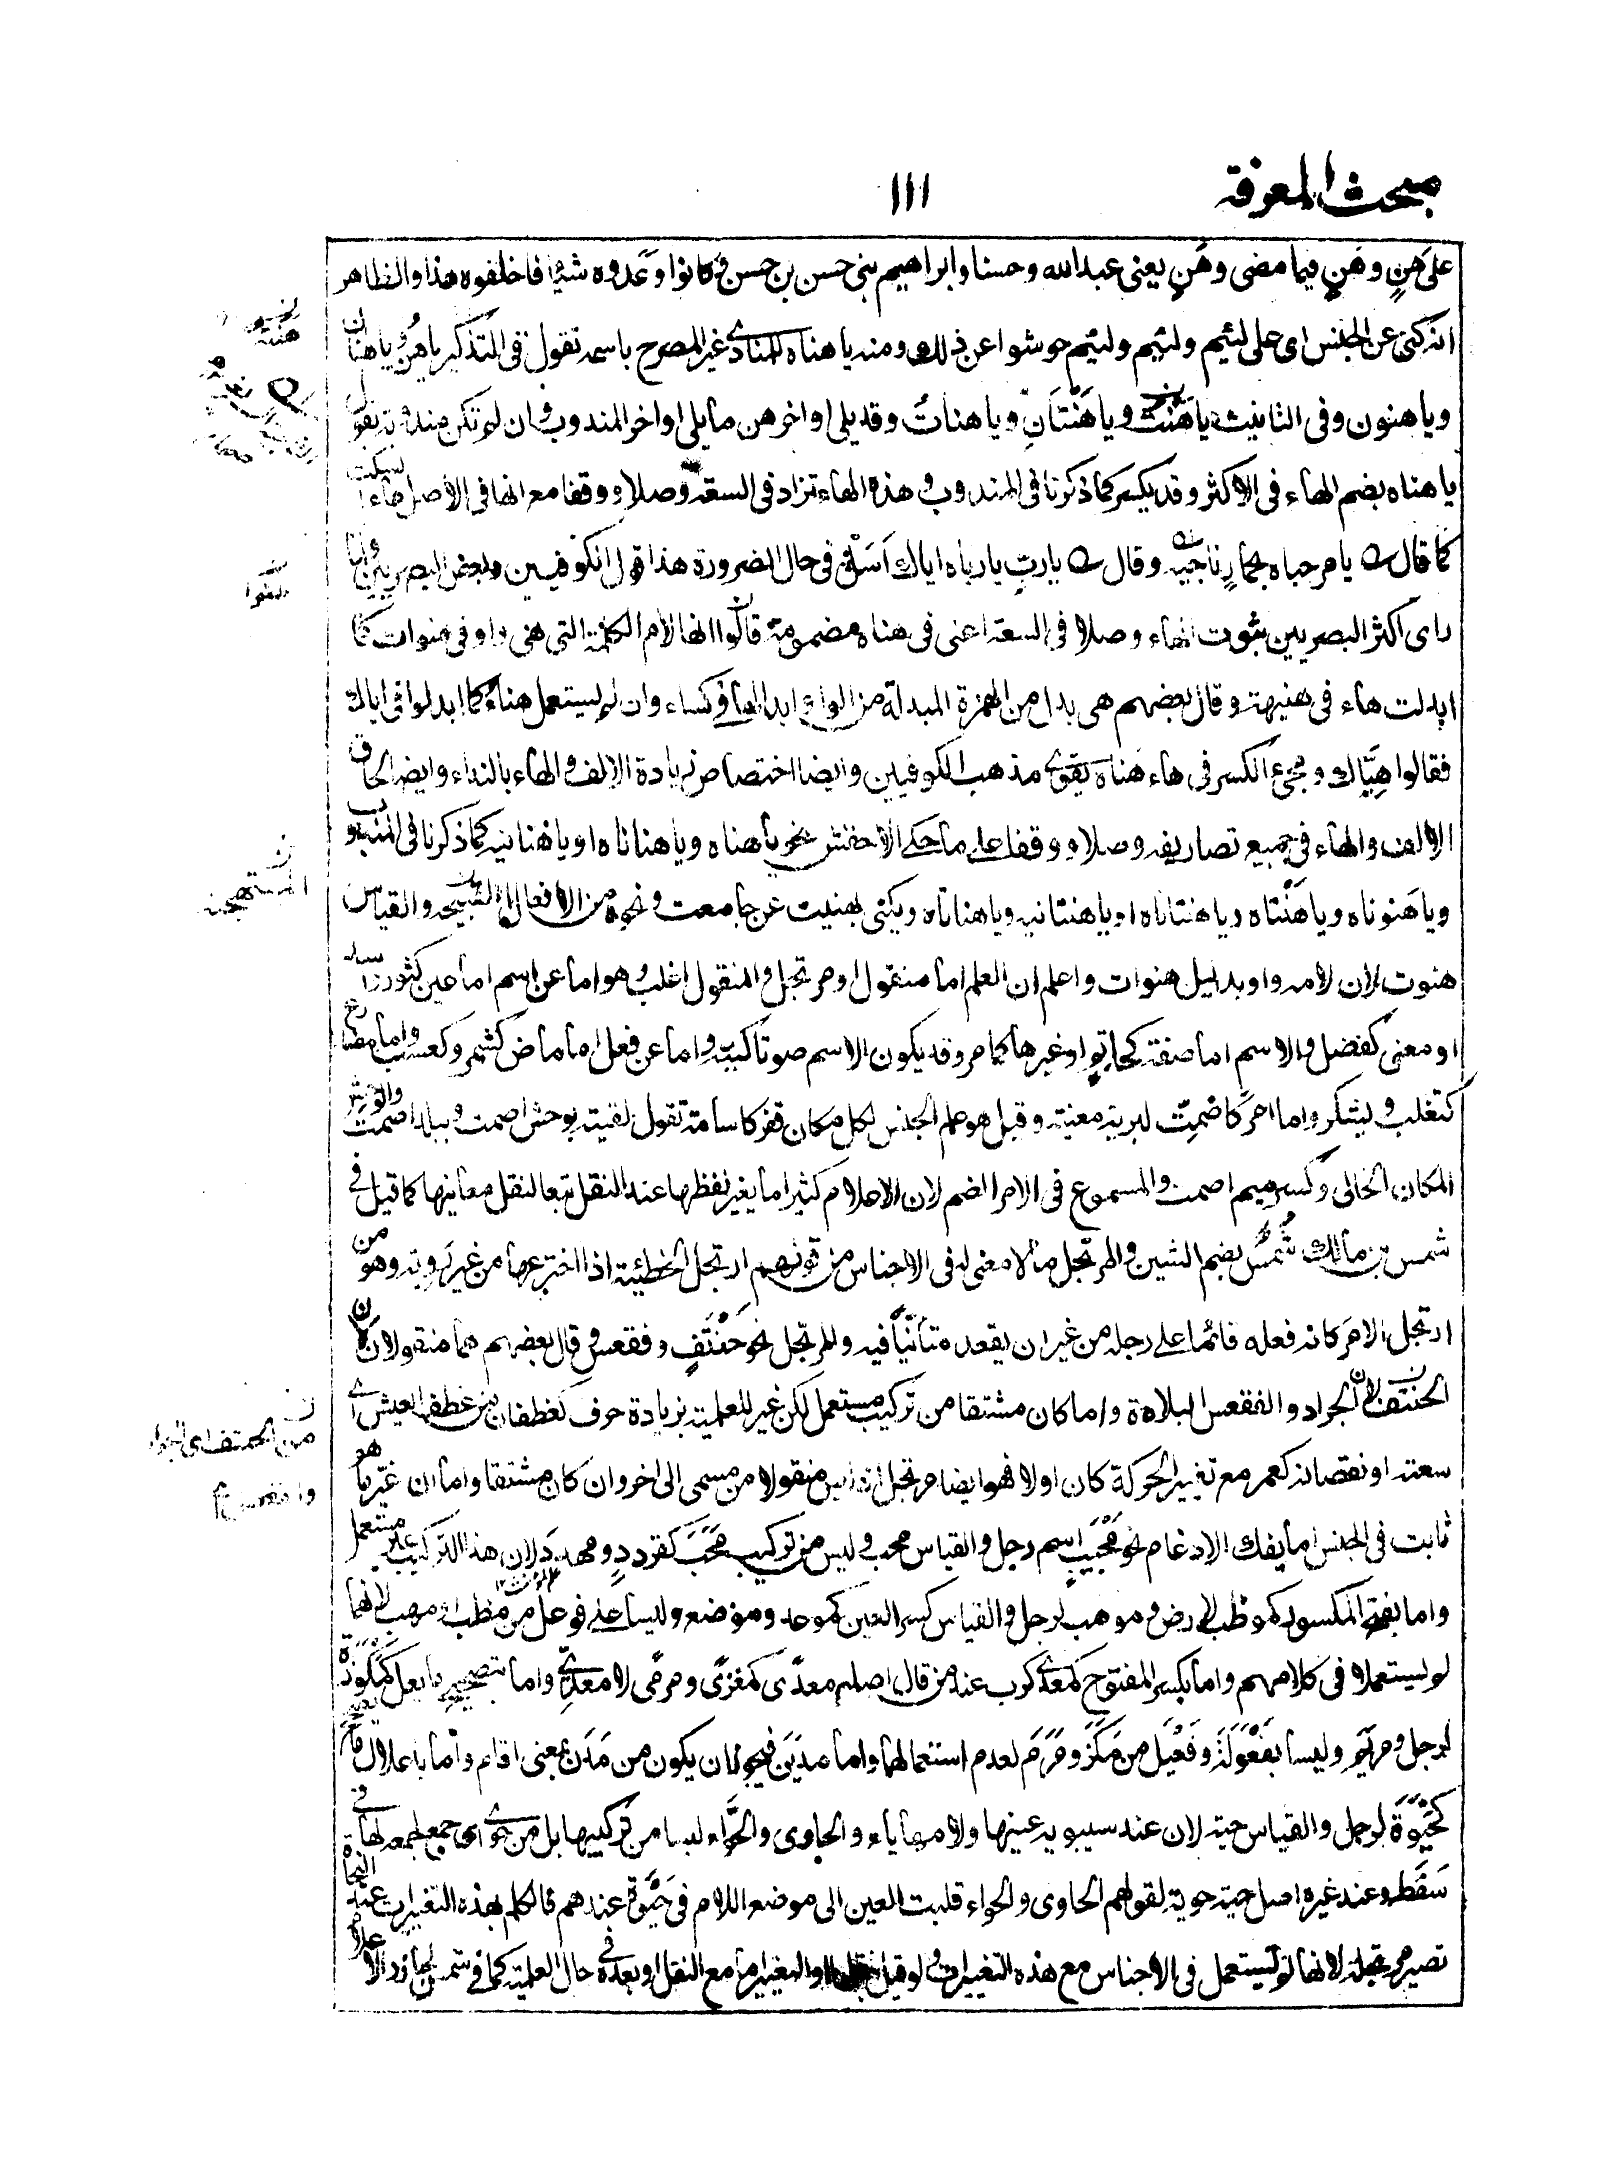 مبحث المعرفة
١١١
على هَنٍ وهَنٍ فيما مضى وهَنٍ يعنى عبدالله وحسنا وابراهيم بنى حسن بن حسن وكانوا وعدوه شيئا فاخلفوه هذا والظاهر
انه كنى عن الجنس اى على لئيم ولئيم ولئيم حوشوا عن ذلك ومنه ياهناه للمنادى غير المصرح باسمه تقول فى التذكير ياهن وياهنان
وياهنون وفى التانيث ياهَنْت وياهَنْتَانِ وياهنات وقد يلى اواخرهن مايلى اواخر المندوب وان لم تكن مندوبة تقول
ياهناه بضم الهاء فى الاكثر وقد يكسر كما ذكرنا فى المندوب وهذه الهاء تزاد فى السعة وصلا ووقفا مع انها فى الاصل هاء السكت
كما قال يا مرحباه بحمار ناجيه وقال يا رب يا رباه اياك اَسَلْ فى حال الضرورة هذا قول الكوفيين وبعض البصريين ولما
راى اكثر البصريين ثبوت الهاء وصلا فى السعة اعنى فى هناه مضمومة قالوا انها لام الكلمة التى هى واو فى هنوات كما
ابدلت هاء فى هنيهة وقال بعضهم هى بدل من الهمزة المبدلة من الواو ابدالها فى كساء وان لم يستعمل هناء كما ابدلوا فى اياك
فقالوا هِيّاك ومجئ الكسر فى هاء هناه يقوى مذهب الكوفيين وايضا اختصاص زيادة الالف والهاء بالنداء وايضا لحاق
الالف والهاء فى جميع تصاريفه وصلا ووقفا على ما حكى الاخفش نحو ياهناه وياهناناه او ياهنانيه كما ذكرنا فى المندوب
وياهنوناه وياهَنْتاه وياهنتاناه او ياهنتانيه وياهناتاه ويكنى بهنيت عن جامعت ونحوه من الافعال القبيحة والقياس
هنوت لان لامه واو بدليل هنوات واعلم ان العلم اما منقول او مرتجل والمنقول اغلب وهو اما عن اسم اما عين كثور واسد
او معنى كفضل والاسم اما صفة كحاتم او غيرها كما مر وقد يكون الاسم صوتا كببه واما عن فعل اما ماض كشمر وكعسب واما مضارع
كتغلب ويشكر واما امر كاصمت لبرية معينة وقيل هو علم الجنس لكل مكان قفر كاسامة تقول لقيته بوحش اصمت وببلد اصمت والوحش
المكان الخالى وكسر ميم اصمت والمسموع فى الامر الضم لان الاعلام كثيرا ما يغير لفظها عند النقل تبعا لنقل معانيها كما قيل فى
شمس بن مالك شُمس بضم الشين والمرتجل ما لا معنى له فى الاجناس من قولهم ارتجل الخطبة اذا اخترعها من غير روية وهو من
ارتجل الامر كانه فعله قائما على رجله من غير ان يقعد متأنّيا فيه والمرتجل نحو حَنْتَفٍ وفقعس وقال بعضهم هما منقولان لان
الحنتف الجراد والفقعس البلادة واما كان مشتقا من تركيب مستعمل لكن غير للعلمية بزيادة حرف كغطفان من غطف العيش اى
سعته او نقصانه كعمر مع تغيير الحركة كان اولا فهو ايضا مرتجل اذ ليس منقولا من مسمى الى اخر وان كان مشتقا واما ان غيّر ما هو
ثابت فى الجنس اما بفك الادغام نحو مَحْبَبٍ اسم رجل والقياس محب وليس من تركيب مَحَبَ كقردد ومهدد لان هذا التركيب غير مستعمل
واما بفتح المكسور كموظب لارض وموهب لرجل والقياس كسر العين كموعد وموضع وليسا على فوعل من مظب ومهب لانهما
لم يستعملا فى كلامهم واما بكسر المفتوح كمعدى كرب عند من قال اصله معدًى كمغزًى ومرمًى لا معدىّ واما بتصحيح ما يعل كمَكْوَزة
لرجل ومريم وليسا بفَعْوَلَة وفَعْيَل من مَكَزَ ومَرَمَ لعدم استعمالهما واما مَدْيَن فيجوز ان يكون من مَدَنَ بمعنى اقام واما باعلال
كحَيْوَة لرجل والقياس حية لان عند سيبويه عينها ولامها ياء والحاوى والحَوَّاء ليسا من تركيبها بل من حوى اى جمع لجمعه لها فى
سَفَطه وعند غيره اصل حية حوية لقولهم الحاوى والحواء قلبت العين الى موضع اللام فى حَيْوَة عندهم فالكلم بهذه التغيرات عند النحاة
تصير مرتجلة لانها لم تستعمل فى الاجناس مع هذه التغييرات ولو قيل والتغيير اما مع النقل او بعده فى حال العلمية كما فى شمس لجاز والاعلام
هنية
المستهجنة
من الحنتف اى الجراد